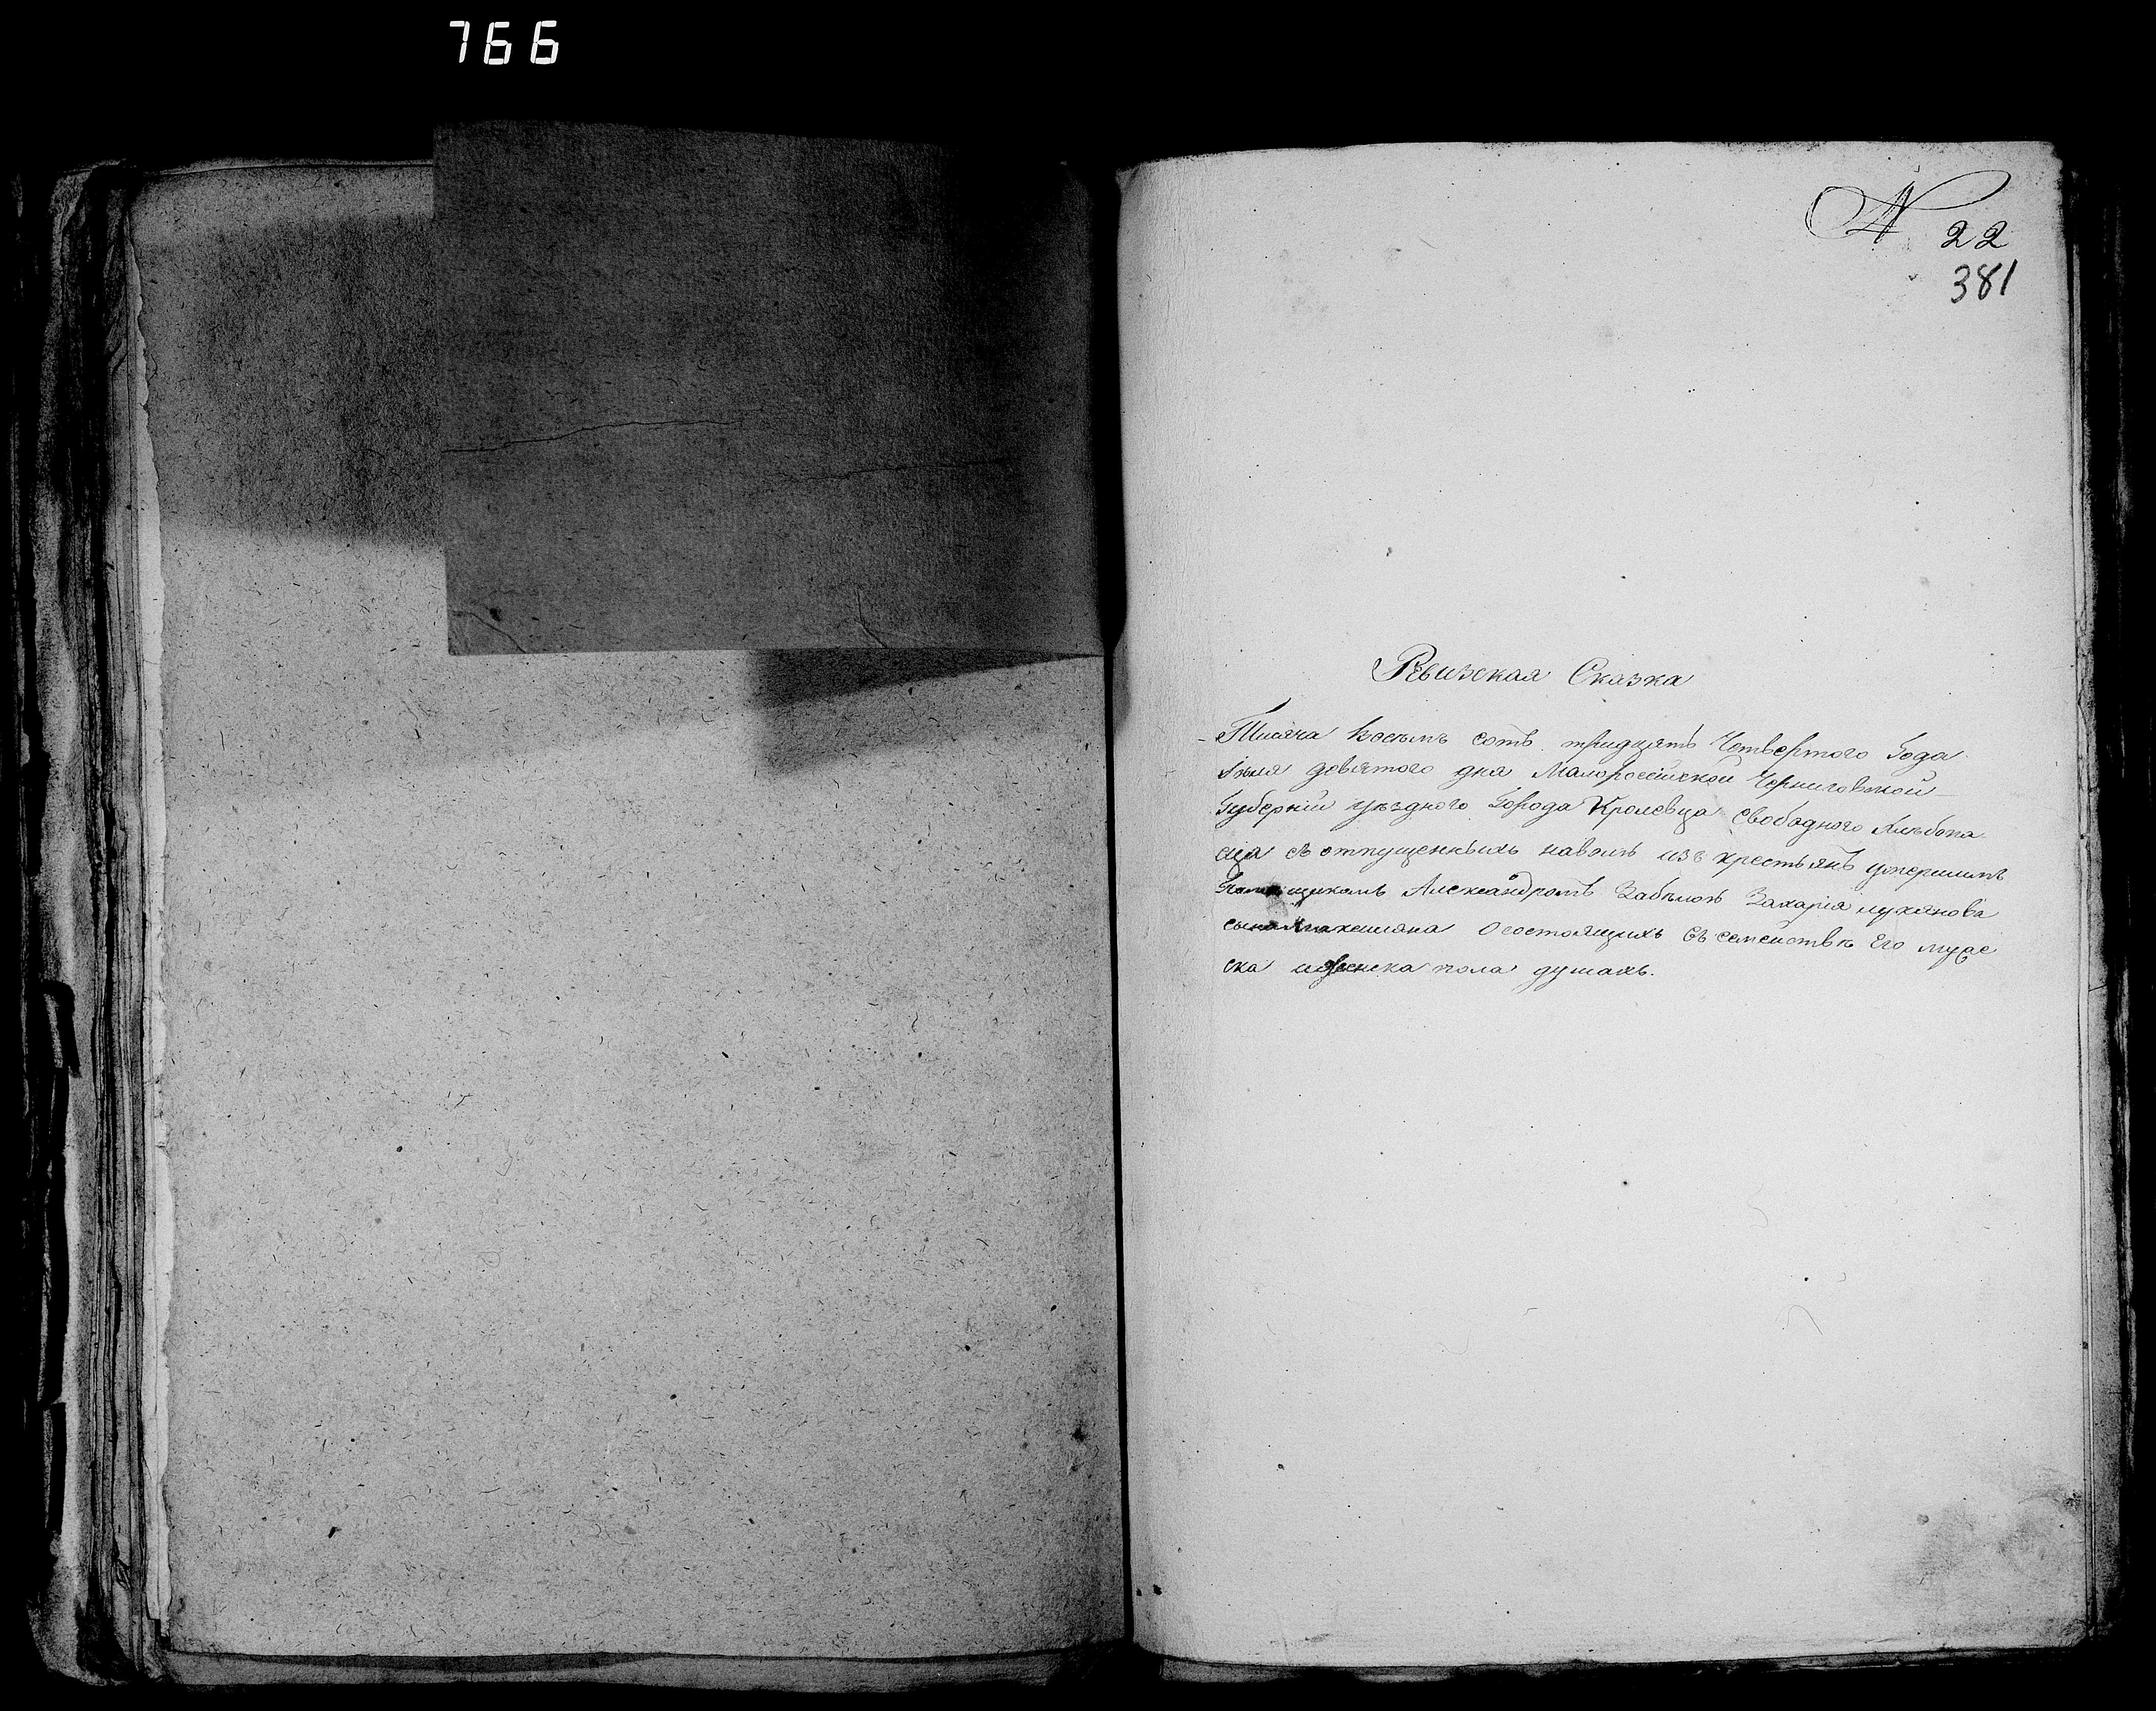 766
№ 22
381
Ревизская Сказка
Тисяча восемъ сотъ тридцять Четвертого Года
девятого дня Малороссійской Черниговской
Губерніи уезднего Города Кролевца Свободного Хлебопа
ца съ отпущенныхъ наволю изъ крестьянъ умершимъ
Помещикомъ Александромъ Забелою Захарія
сына о состоящихъ въ семействе Его муже
ска и женска пола душахъ.